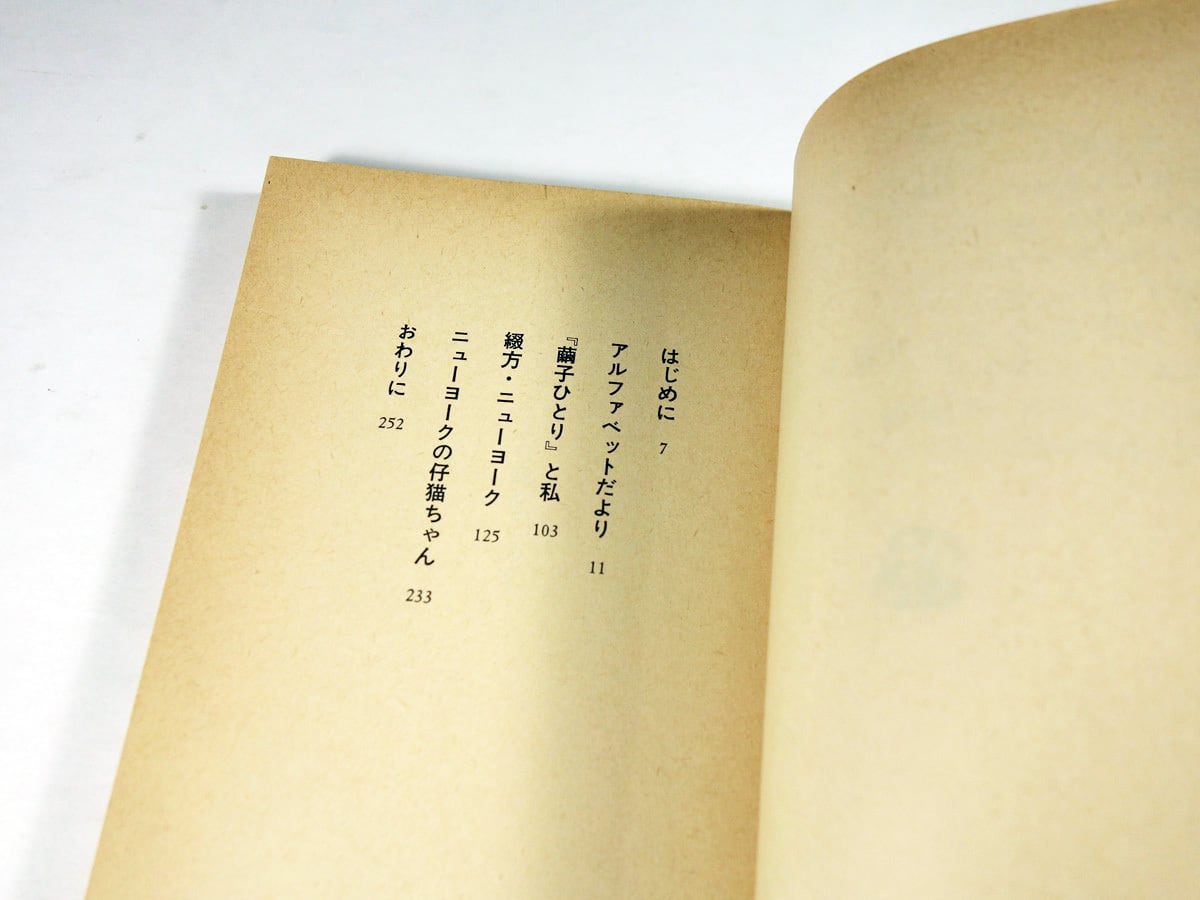 はじめに 7
アルファベットだより 11
『繭子ひとり』と私 103
綴方・ニューヨーク 125
ニューヨークの仔猫ちゃん 233
おわりに 252